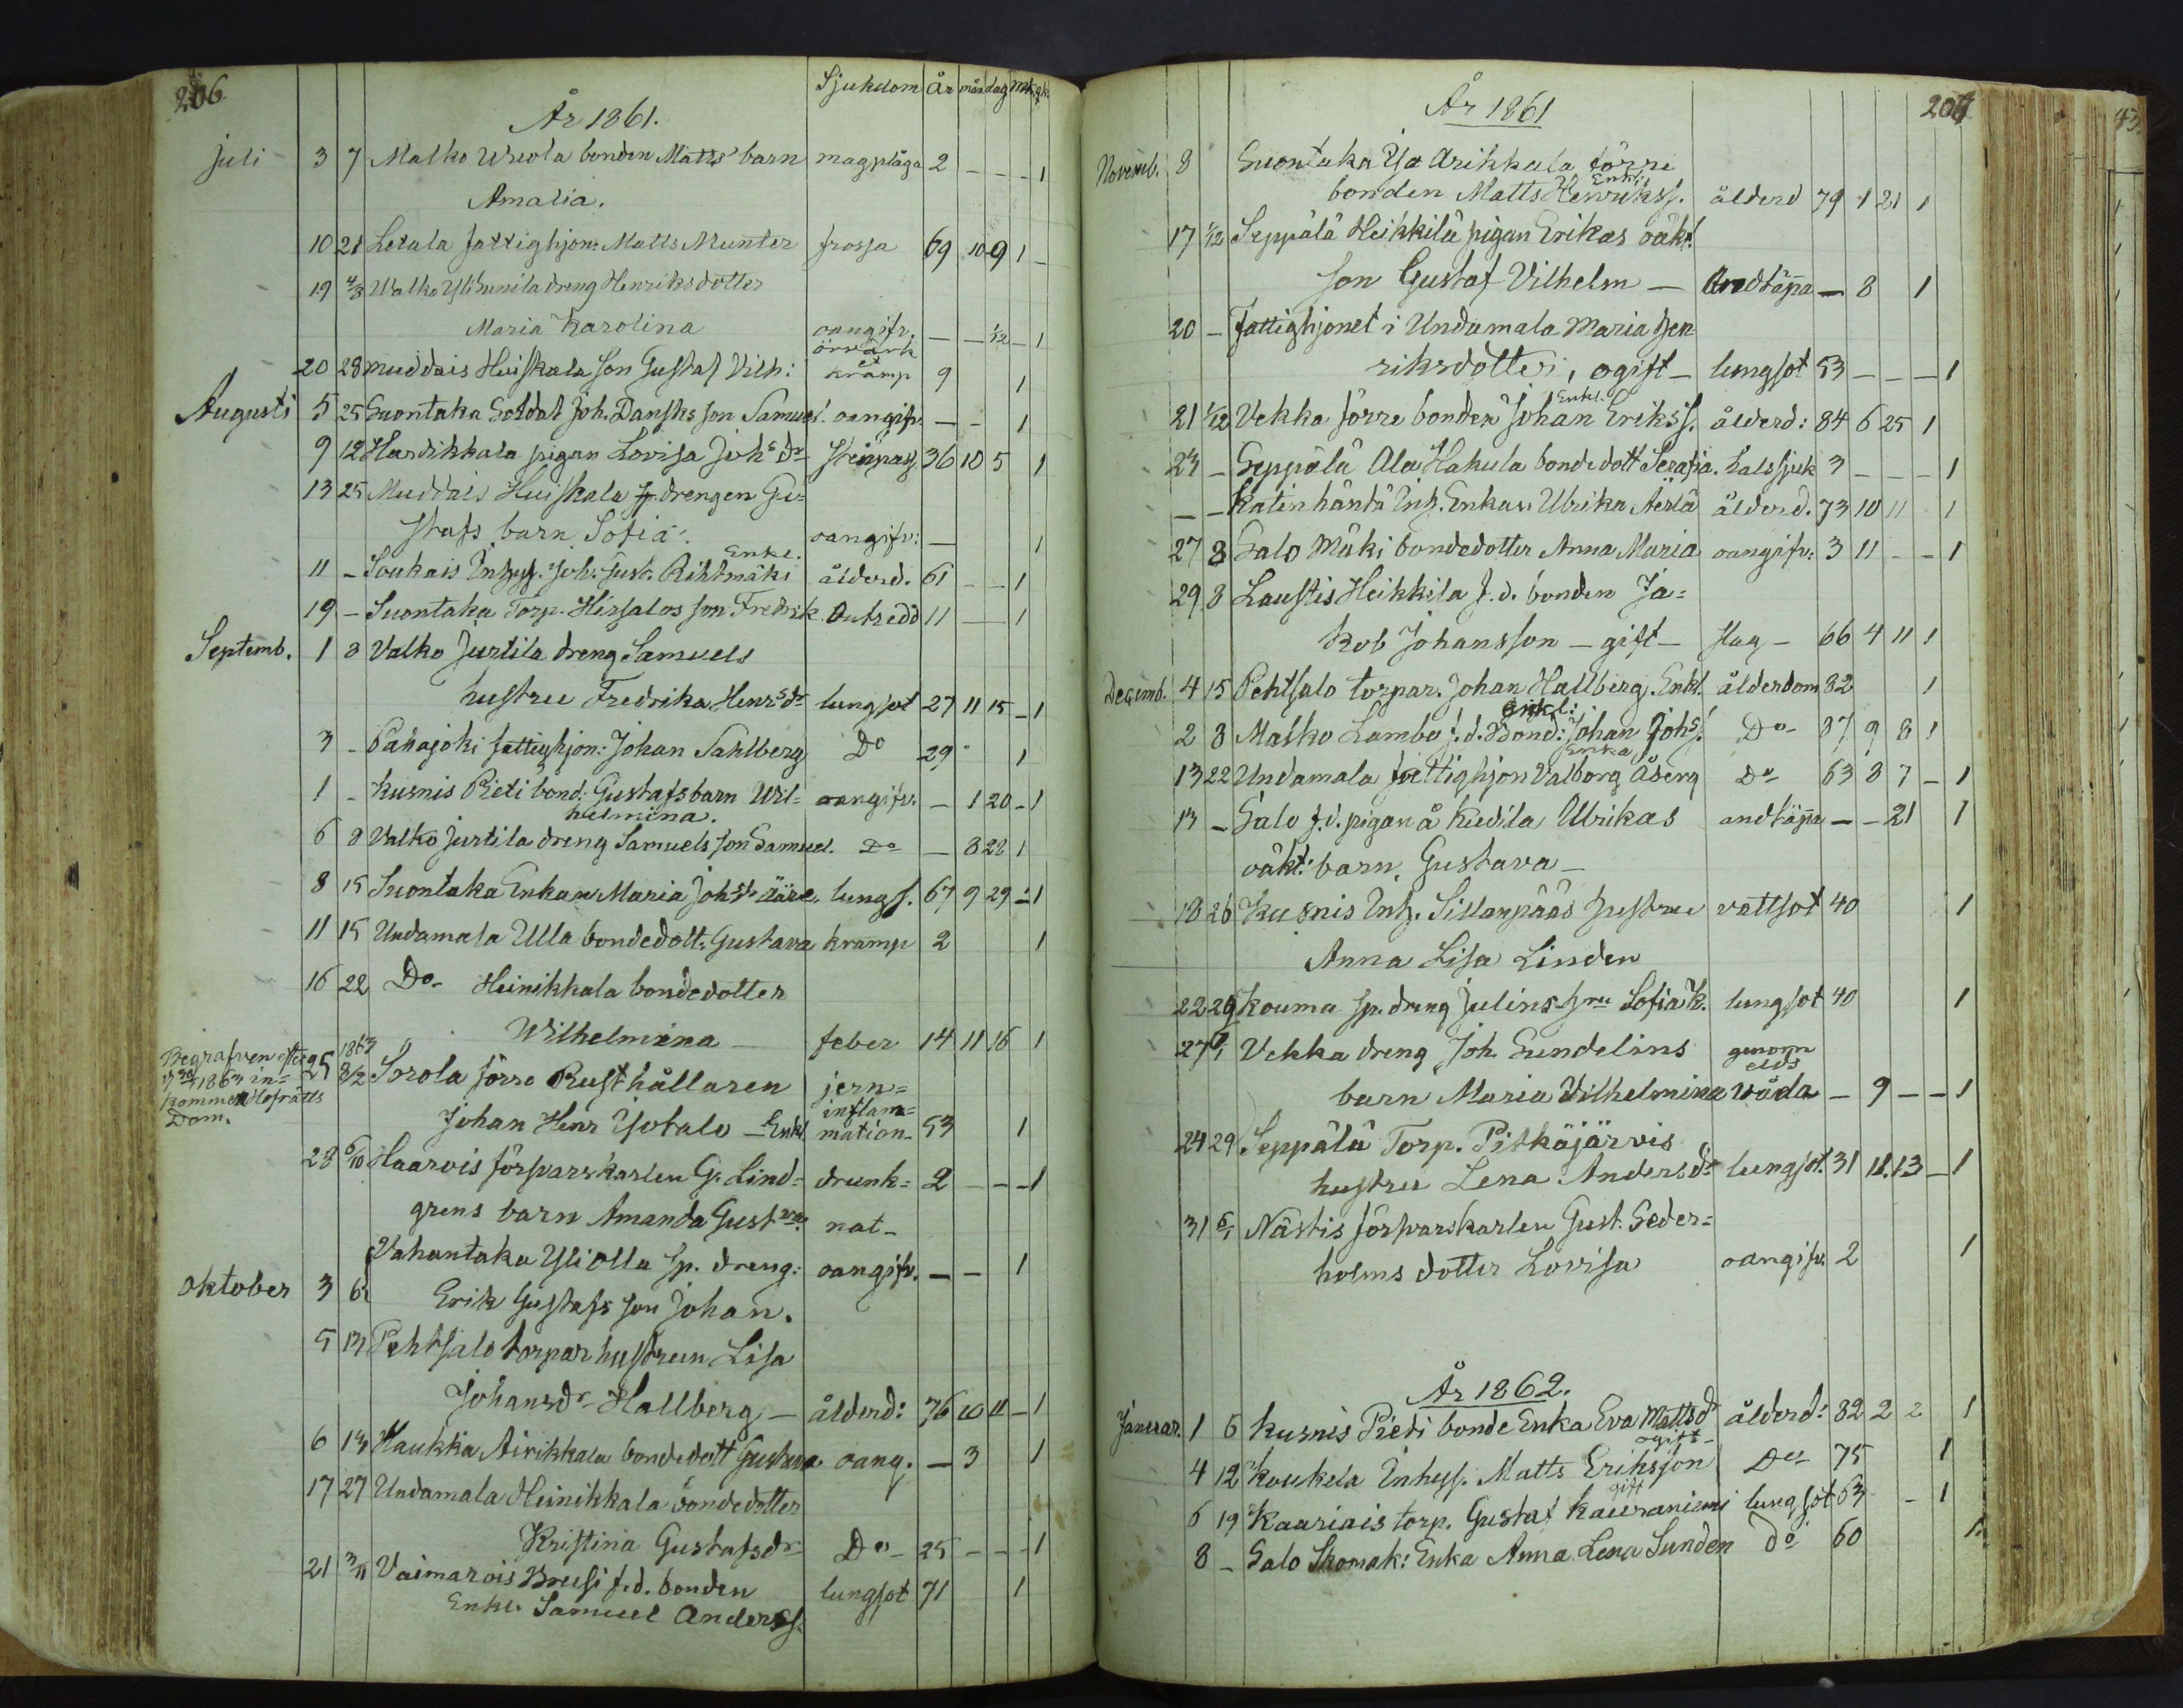 206
Sjukdom År mån dag mk. qk.
År 1861.
Juli 3 7 Malko Uriola bonden Matts' barn magplåga 2 - - - 1
Amalia.
10 21 Letala fattighjon: Matts Munter frossa 69 10 9 1 -
19 4/8 Walko Yli Junila dreng Henriks dotter
Maria Karolina oangifv. - - 1/12 - 1
örvärk
20 28 Muddais Huiskala Son Gustaf Vilh: kramp 9 1
Augusti 5 25 Suontaka Soldat Joh. Dansks son Samuel. oangifv. - - 1
9 12 Hardikkala pigan Lovisa Johsdr 36 10 5 1
13 25 Muddais Huiskala sp. drengen Gu=
stafs barn Sofia. oangifv: - 1
Enkl.
11 - Soukais Inhys. Joh. Gust. Rihtmäki ålderd. 61 - - 1
19 - Suontaka Torp. Hirsalos son Fredrik. Outredd 11 - - 1
Septemb. 1 8 Valko Jurtila dreng Samuels
hustru Fredrika Henrsdr lungsot 27 11 15 - 1
3 - Pahajoki fattighjon: Johan Sahlberg Do 29 1
1 - Kusnis Pieti bond: Gustafs barn Wil= oangifv. - 1 20 - 1
helmina.
6 8 Valko Jurtila dreng Samuels son Samuel. Do - 8 28 1
8 15 Suontaka Enkan Maria Johsdr lungs. 67 9 29 - 1
11 15 Undamala Ulla bondedott: Gustava kramp 2 1
16 22 Do Heinikkala bondedotter
Wilhelmina feber 14 11 16 1
Begrafven efter
1863 in=
kommen Hofrätts
Dom.
1863
25 8/2 Sorola förre Rusthållaren jern=
inflam=
Johan Henr Yotalo - Enkl. mation- 53 1
28 6/10 Haarvis försvarskarlen G. Lind= drunk= 2 - - - 1
grens barn Amanda Gustva nat-
Vahantaka Yli Olla sp. dreng: oangifv. - - 1
Oktober 3 6 Erik Gustafs son Johan.
5 13 Pehtsalo torpar hustrun Lisa
Johansdr Hallberg - ålderd: 76 10 11 - 1
6 13 Haukka Airikkala bondedott Gustava oang. - 3 1
17 27 Undamala Heinikkala bondedotter
Kristina Gustafsdr Do 25 - - - 1
21 3/11 Vaimarois Breusi f.d. bonden lungsot 71 1
Enkl. Samuel Anderss.
År 1861
207
Novemb. 8 Suontaka Yja Arikkala förre
Enkl:
bonden Matts Henrikss. ålderd 79 1 21 1
17 1/12 Seppälä Heikkilä pigan Erikas oäkt.
son Gustaf Vilhelm - Andtäpa - 8 1
20 - Fattighjonet i Undamala Maria Hen
riksdotter, ogift - lungsot 53 - - - 1
Enkl.
21 1/12 Vekka förre bonden Johan Erikss. ålderd: 84 6 25 1
23 - Seppälä Ala Hakula bondedott Serafia. halssjuk 3 - - - 1
- - Katinhäntä Inh. Enkan Ulrika Aerlä ålderd. 73 10 11 1
27 8 Salo Mäki bondedotter Anna Maria oangifv: 3 11 - - 1
29 8 Laustis Heikkila f.d. bonden Ja=
kob Johansson - gift - slag - 66 4 11 1
Decemb. 4 15 Pehtsalo torpar. Johan Hallberg. Enkl. ålderdom 82 1
enkl:
2 8 Malko Lambo f.d. Bond: Johan Johs. Do 87 9 8 1
Enka
13 22 Undamala fattighjon Valborg Åberg Do 63 8 7 - 1
13 - Salo f.d. pigan å Kiedila Ulrikas andtäpa - - 21 1
oäkt: barn. Gustava -
18 26 Kusnis Inh. Sillanpääs hustru vattsot 40 1
Anna Lisa Linden
22 29 Kouma sp. dreng Julins hru Sofia K. lungsot 40 1
27 Vekka dreng Joh. Sundelins genom
elds
barn Maria Vilhelmina våda - 9 - - 1
24 29 Seppälä Torp. Pitkäjärvis
hustru Lena Andersdr lungsot. 31 11. 13 - 1
31 6/1 Nästis försvarskarlen Gust. Seder=
holms dotter Lovisa oangifv. 2 1
År 1862.
Januar. 1 6 Kusnis Pieti bonde Enka Eva Mattsdr ålderd: 82 2 2 1
ogift
4 12 Koukela Inhys. Matts Eriksson Do 75 1
gift
6 19 Kaariais torp. Gustaf Kauraniemi lungsot 63 - 1
8 - Salo Skomak: Enka Anna Lena Sunden do 60 1
43.